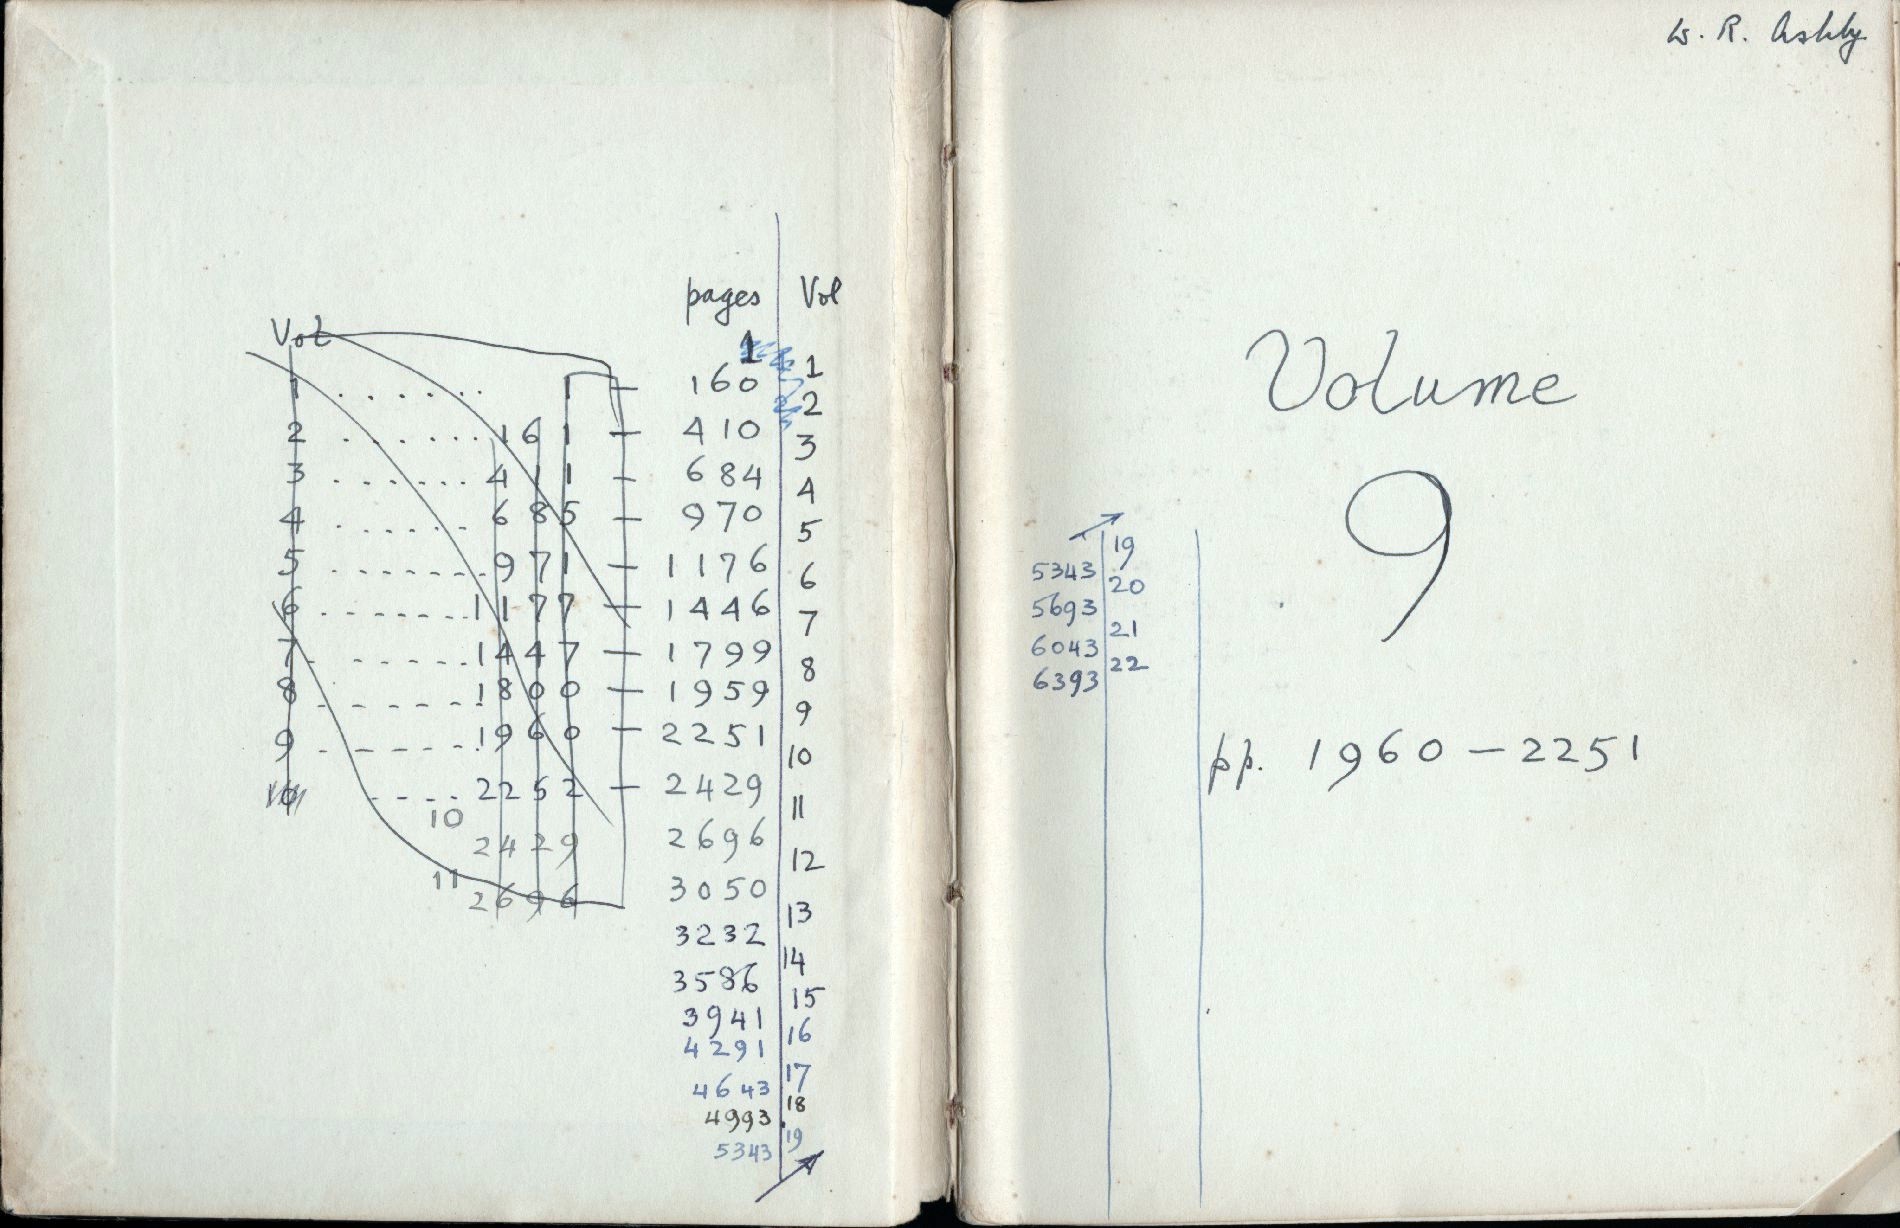 Vol
1 . . . . . . 1
2 . . . . . . . 161
3 . . . . . . 411
4 . . . . . . 685
5 - - - - - - - 971
6 - - - - - - - 1177
7 - - - - - - 1447
8 - - - - - - 1800
9 - - - - - - 1960
- - - - 2252
10
2429
11
2696
pages Vol
1
1
160
2
410
3
684
4
970
5
1176
6
1446
7
1799
8
1959
9
2251
10
2429
11
2696
12
3050
13
3232
14
3586
15
3941
16
4291
17
4643
18
4993
19
5343
W. R. Ashby
Volume
9
19
5343
20
5693
21
6043
22
6393
pp. 1960 – 2251